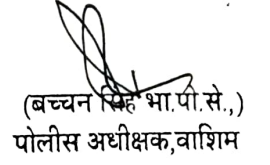 (बच्चन सिंह भा.पो.से.,)
पोलीस अधीक्षक,वाशिम